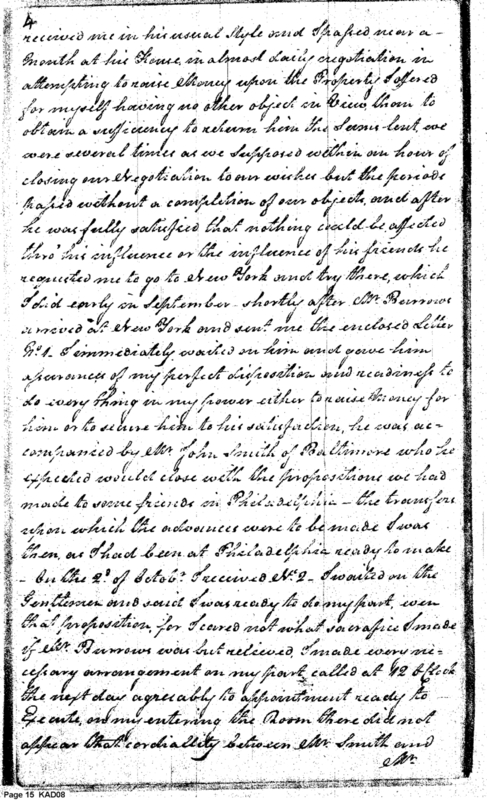 4
received me in his usual Style and I passed near a
Month at his House, in almost daily negotiation in
attempting to raise Money upon the Property I offered
for myself having no other object in View than to
obtain a sufficiency to return him the Sums lent, we
were several times as we supposed within an hour of
closing our Negotiation to our wishes but the periods
passed without a completion of our objects, and after
he was fully satisfied that nothing could be affected
thro' his influence or the influence of his friends he
requested me to go to New York and try there, which
I did early in September - shortly after Mr. Burrows
arrived at New York and sent me the enclosed Letter
No. 1. I immediately waited on him and gave him
assurances of my perfect disposition and readiness to
do every thing in my power either to raise Money for
him or to secure him to his satisfaction, he was ac-
companied by Mr. John Smith of Baltimore who he
expected would close with the propositions we had
made to some friends in Philadelphia - the transfers
upon which the advances were to be made I was
then, as I had been at Philadelphia ready to make
- On the 2d. of Octob. I received No. 2 - I waited on the
Gentlemen and said I was ready to do my part, even
that proposition, for I cared not what sacrifice I made
if Mr. Burrows was but relieved, I made every ne-
cessary arrangement on my part, called at 12 O'Clock
the next day agreeably to appointment ready to
Execute, on my entering the Room there did not
appear that cordiallity between Mr. Smith and
Mr.
Page 15 KAD08